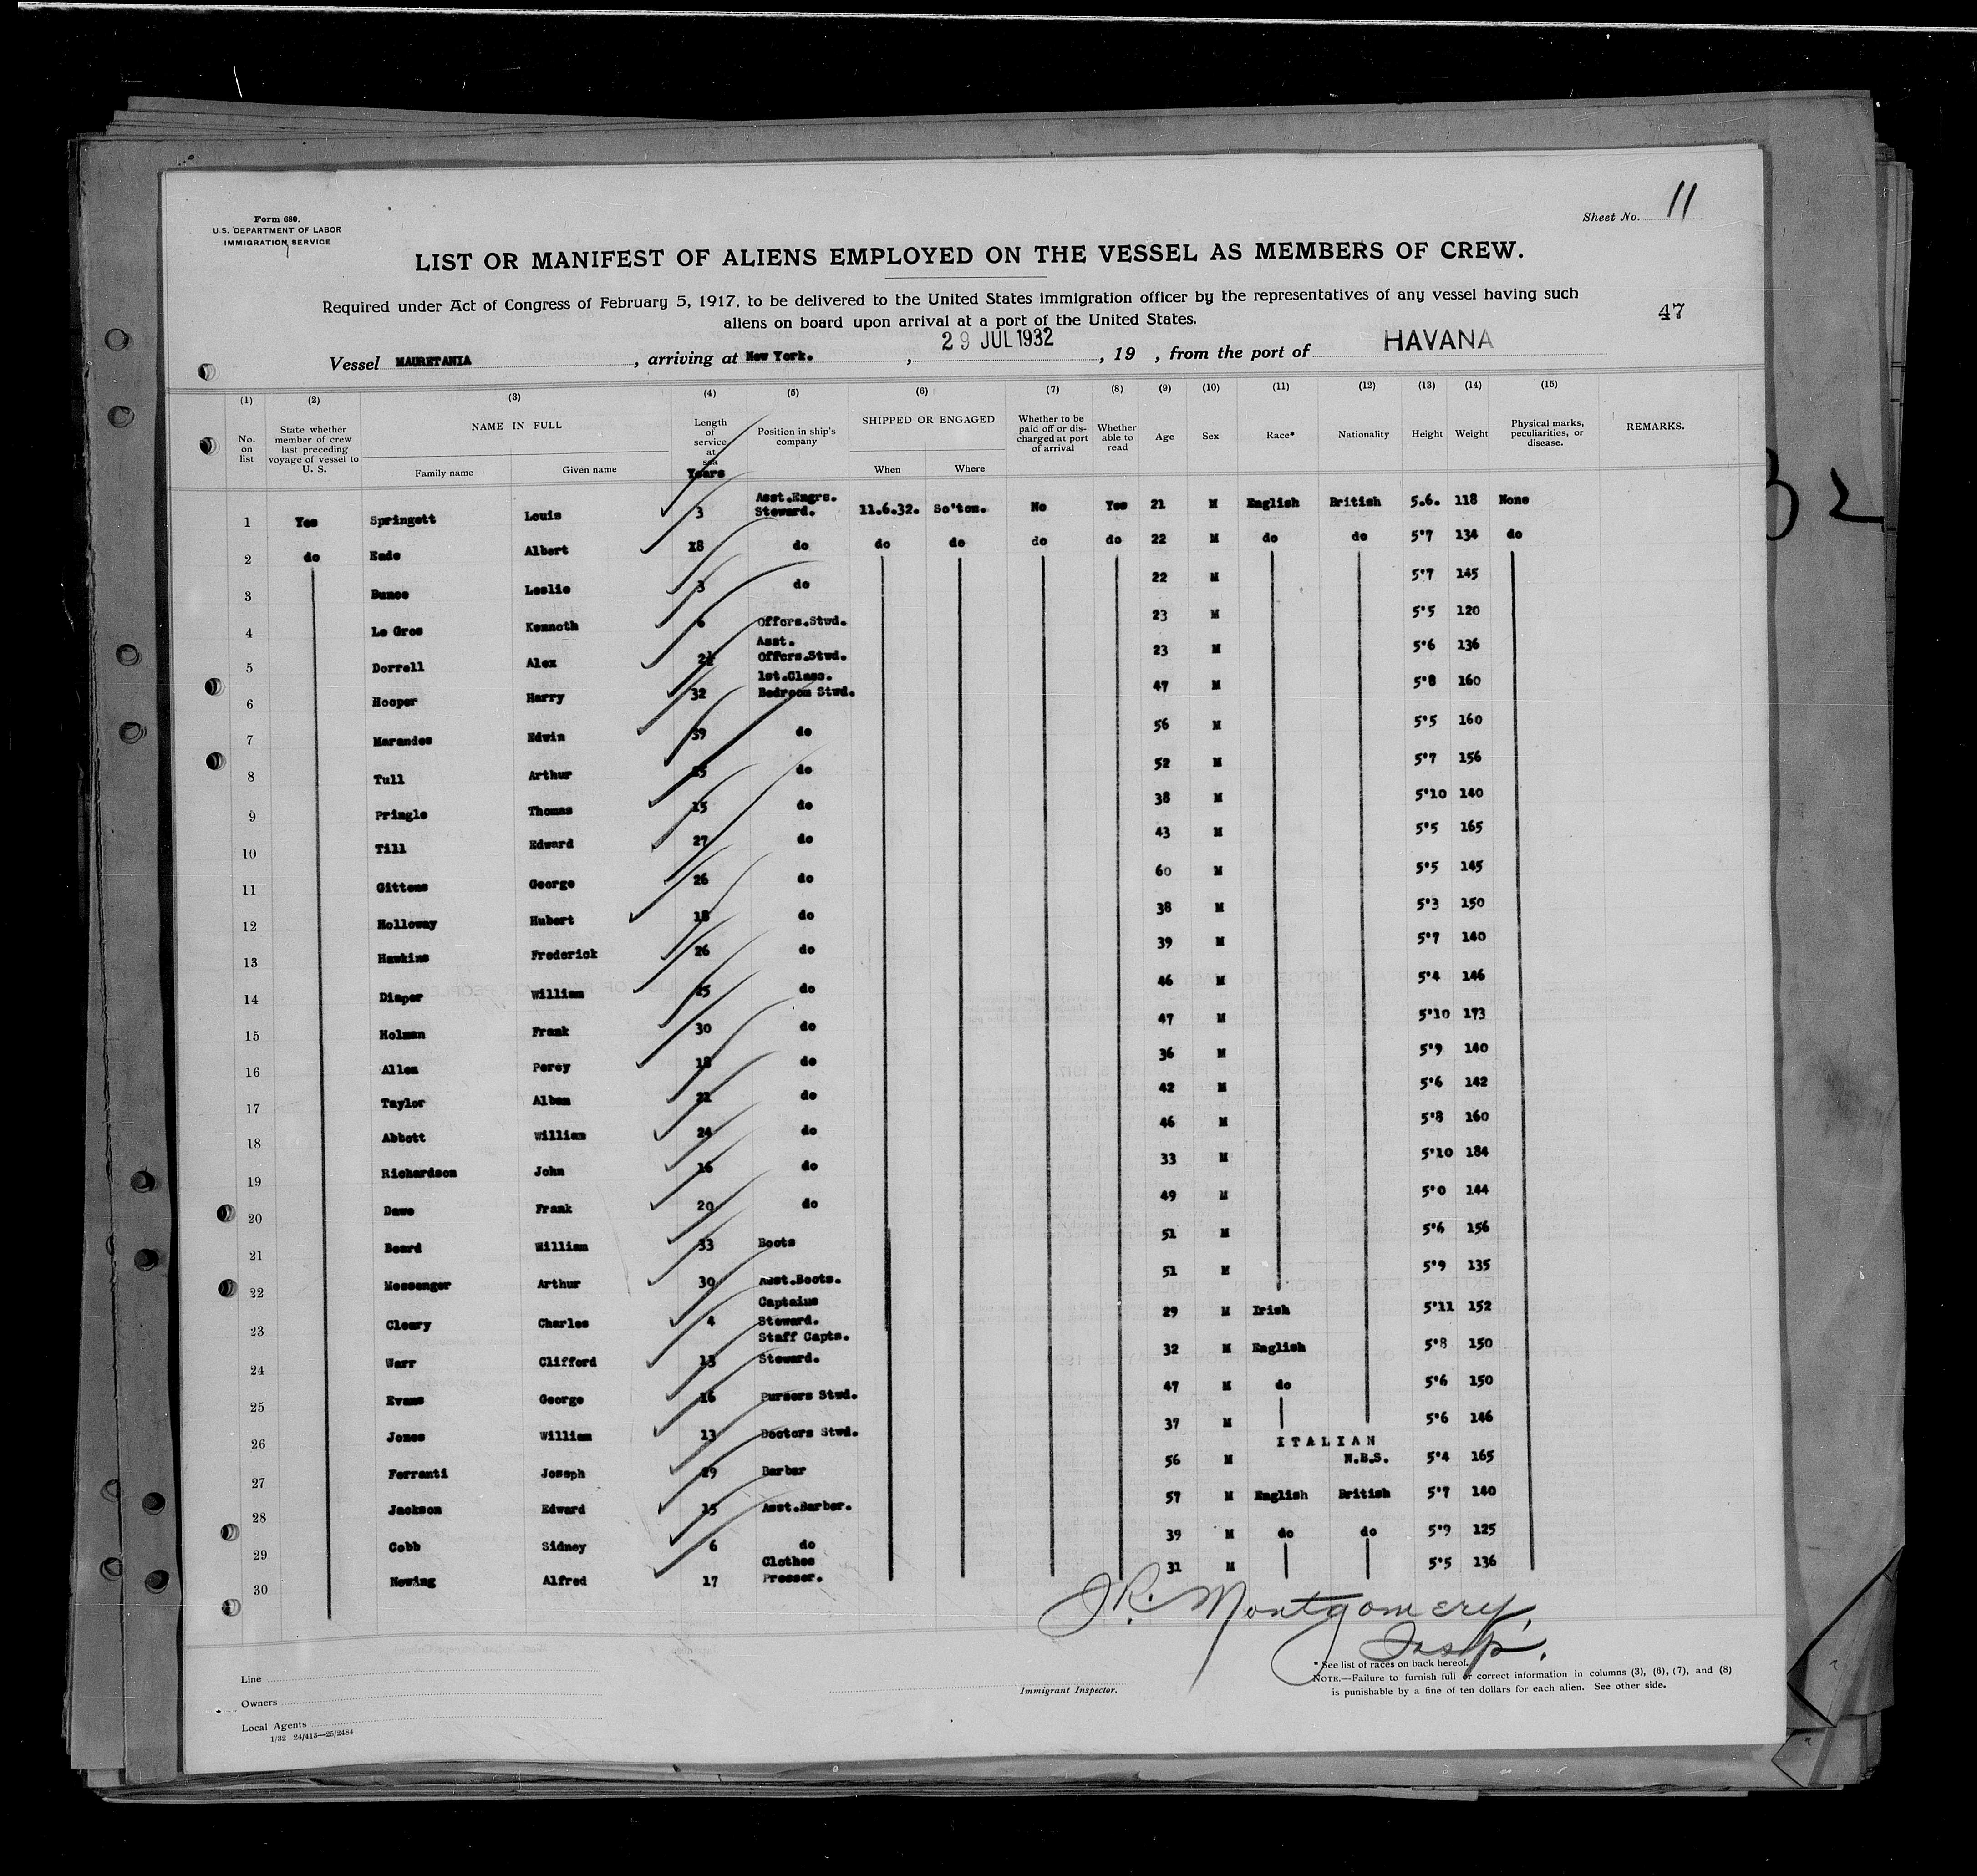 Form 680.
U.S. DEPARTMENT OF LABOR
IMMIGRATION SERVICE
Sheet No. 11
LIST OR MANIFEST OF ALIENS EMPLOYED ON THE VESSEL AS MEMBERS OF CREW.
Required under Act of Congress of February 5, 1917, to be delivered to the United States immigration officer by the representatives of any vessel having such
aliens on board upon arrival at a port of the United States.
47
Vessel MAURETANIA, arriving at New York., 29 JUL 1932, 19 , from the port of HAVANA
(1) (2) (3) (4) (5) (6) (7) (8) (9) (10) (11) (12) (13) (14) (15)
No. on list
State whether member of crew last preceding voyage of vessel to U. S.
NAME IN FULL
Family name
Given name
Length of service at sea
Years
Position in ship's company
SHIPPED OR ENGAGED
When
Where
Whether to be paid off or discharged at port of arrival
Whether able to read
Age
Sex
Race*
Nationality
Height
Weight
Physical marks, peculiarities, or disease.
REMARKS.
1 Yes Springett Louis 3 Asst.Engrs. Steward. 11.6.32. So'ton. No Yes 21 M English British 5.6. 118 None
2 do Eade Albert 18 do do do do do 22 M do do 5'7 134 do
3 Bunce Leslie 3 do 22 M 5'7 145
4 Le Gros Kenneth 6 Offcrs.Stwd. 23 M 5'5 120
5 Dorrell Alex 2½ Asst. Offcrs.Stwd. 23 M 5'6 136
6 Hooper Harry 32 1st.Class. Bedroom Stwd. 47 M 5'8 160
7 Marandos Edwin 39 do 56 M 5'5 160
8 Tull Arthur 25 do 52 M 5'7 156
9 Pringle Thomas 15 do 38 M 5'10 140
10 Till Edward 27 do 43 M 5'5 165
11 Gittens George 26 do 60 M 5'5 145
12 Holloway Hubert 18 do 38 M 5'3 150
13 Hawkins Frederick 26 do 39 M 5'7 140
14 Diaper William 25 do 46 M 5'4 146
15 Holman Frank 30 do 47 M 5'10 173
16 Allen Percy 18 do 36 M 5'9 140
17 Taylor Alban 21 do 42 M 5'6 142
18 Abbott William 24 do 46 M 5'8 160
19 Richardson John 16 do 33 M 5'10 184
20 Dawe Frank 20 do 49 M 5'0 144
21 Beard William 33 Boots 51 M 5'6 156
22 Messenger Arthur 30 Asst.Boots. 51 M 5'9 135
23 Cleary Charles 4 Captains Steward. 29 M Irish 5'11 152
24 Warr Clifford 13 Staff Capts. Steward. 32 M English 5'8 150
25 Evans George 16 Pursers Stwd. 47 M do 5'6 150
26 Jones William 13 Doctors Stwd. 37 M 5'6 146
27 Ferranti Joseph 29 Barber 56 M ITALIAN N.B.S. 5'4 165
28 Jackson Edward 15 Asst.Barber. 57 M English British 5'7 140
29 Cobb Sidney 6 do 39 M do do 5'9 125
30 Newing Alfred 17 Clothes Presser. 31 M 5'5 136
J R. Montgomery,
Insp.
Line
Owners
Local Agents
1/32 24/413—25/2484
Immigrant Inspector.
* See list of races on back hereof.
NOTE.—Failure to furnish full or correct information in columns (3), (6), (7), and (8)
is punishable by a fine of ten dollars for each alien. See other side.